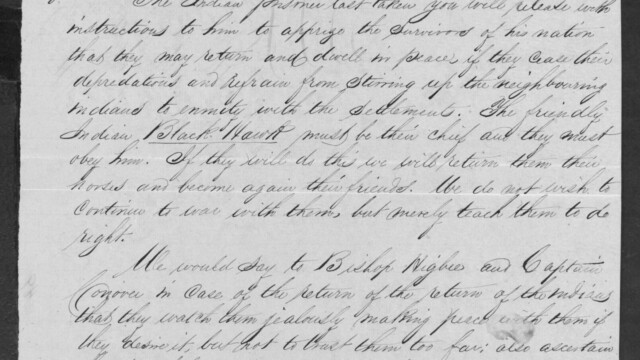 The Indian prisoner last taken you will release with
instructions to him to apprize the survivors of his nation
that they may return and dwell in peace, if they cease their
depredations and refrain from stirring up the neighbouring
indians to enmity with the settlements. The friendly
Indian Black Hawk must be their chief and they must
obey him. If they will do this we will return them their
horses and become again their friends. We do not wish to
continue to war with them, but merely teach them to do
right.
We would say to Bishop Higbee and Captain
Conover in case of the return of the return of the Indians
that they watch them jealously making peace with them if
they desire it, but not to trust them too far; also ascertain